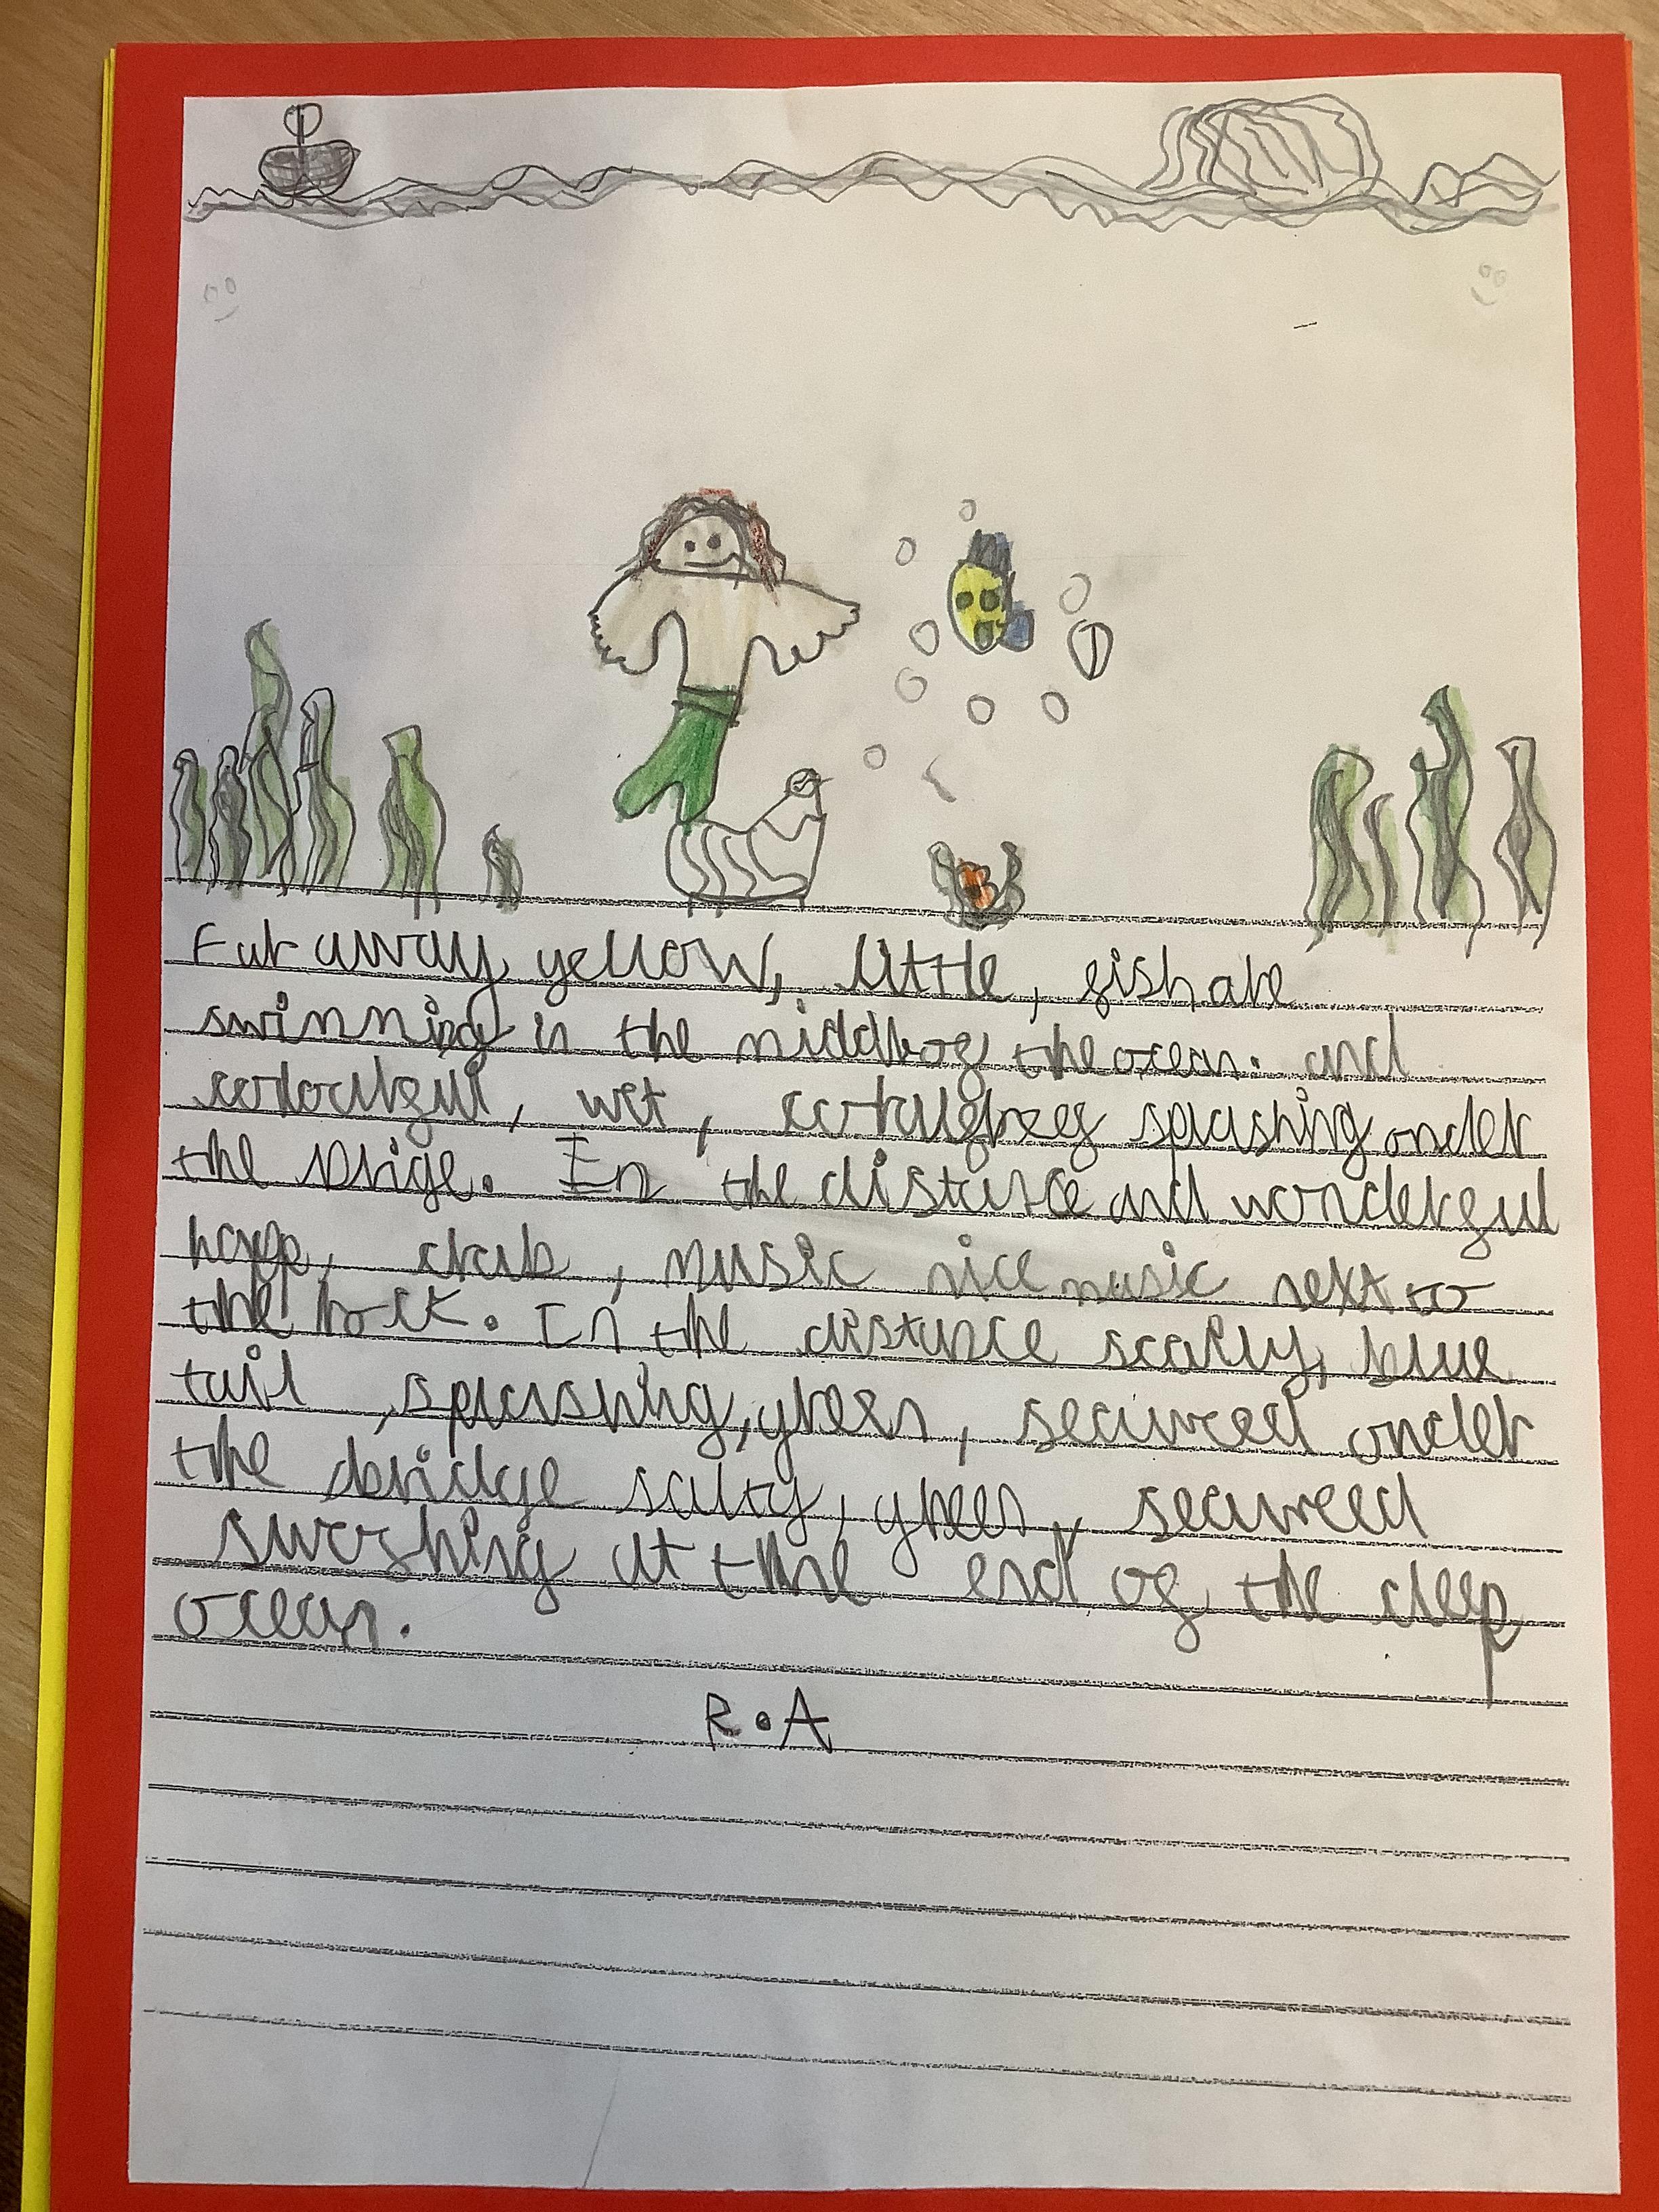 Far away yellow, little, fish are
swimming in the middle of the ocean. and
colourful, wet, splashing under
the brige. In the distance and wonderful
happ, crab, music nice music next to
the rock. In the distance scaily, blue
tail, splashing, green, seaweed under
the bridge salty, green, seaweed
swoshing at the end of the deep
ocean.
R.A